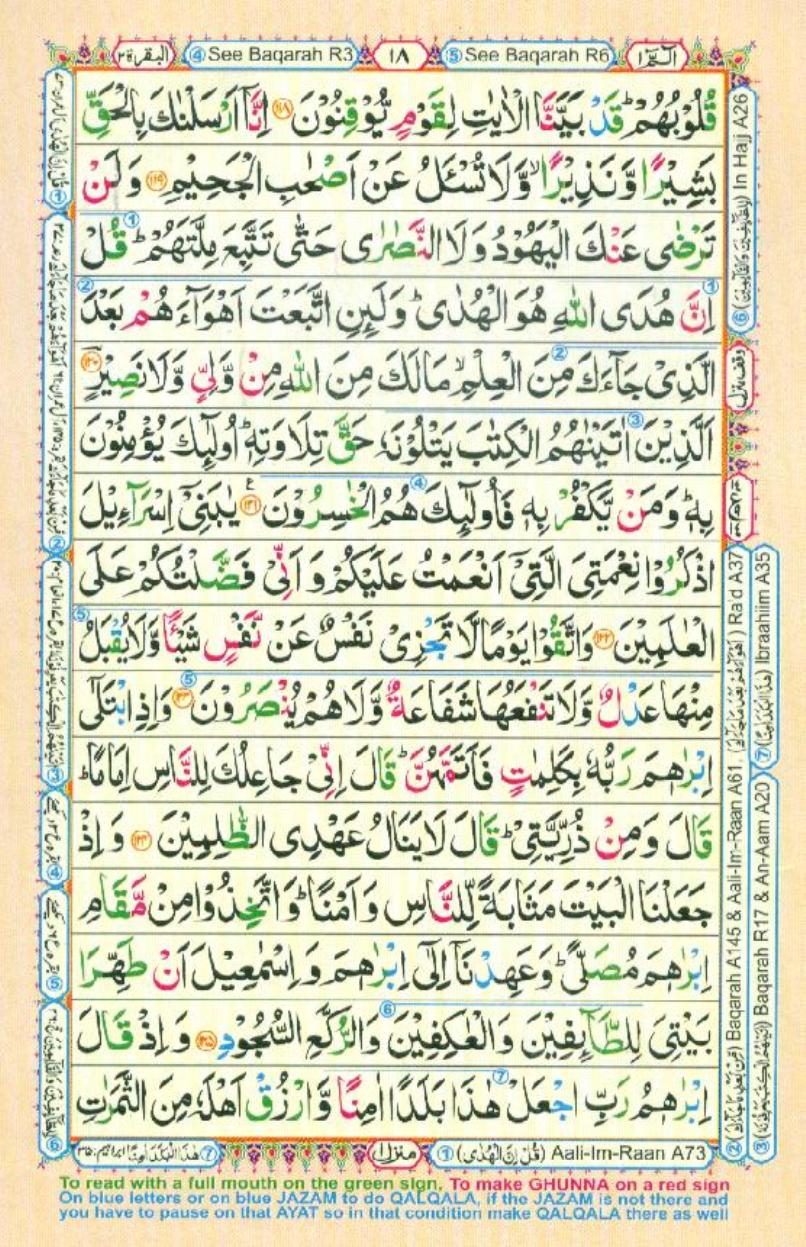 البقرة ٢
④ See Baqarah R3
١٨
⑤ See Baqarah R6
الٓمّٓ ١
قُلُوْبُهُمْ ؕ قَدْ بَيَّنَّا الْاٰيٰتِ لِقَوْمٍ يُّوْقِنُوْنَ ﴿۱۱۸﴾ اِنَّاۤ اَرْسَلْنٰكَ بِالْحَقِّ
بَشِيْرًا وَّ نَذِيْرًا ۙ وَّ لَا تُسْـَٔلُ عَنْ اَصْحٰبِ الْجَحِيْمِ ﴿۱۱۹﴾ وَ لَنْ
تَرْضٰى عَنْكَ الْيَهُوْدُ وَ لَا النَّصٰرٰى حَتّٰى تَتَّبِعَ مِلَّتَهُمْ ؕ قُلْ
اِنَّ هُدَى اللّٰهِ هُوَ الْهُدٰى ؕ وَ لَىِٕنِ اتَّبَعْتَ اَهْوَآءَهُمْ بَعْدَ
الَّذِىْ جَآءَكَ مِنَ الْعِلْمِ ۙ مَا لَكَ مِنَ اللّٰهِ مِنْ وَّلِىٍّ وَّ لَا نَصِيْرٍ ﴿۱۲۰﴾
اَلَّذِيْنَ اٰتَيْنٰهُمُ الْكِتٰبَ يَتْلُوْنَهٗ حَقَّ تِلَاوَتِهٖ ؕ اُولٰٓىِٕكَ يُؤْمِنُوْنَ
بِهٖ ؕ وَ مَنْ يَّكْفُرْ بِهٖ فَاُولٰٓىِٕكَ هُمُ الْخٰسِرُوْنَ ﴿۱۲۱﴾ يٰبَنِىْۤ اِسْرَآءِيْلَ
اذْكُرُوْا نِعْمَتِىَ الَّتِىْۤ اَنْعَمْتُ عَلَيْكُمْ وَ اَنِّىْ فَضَّلْتُكُمْ عَلَى
الْعٰلَمِيْنَ ﴿۱۲۲﴾ وَ اتَّقُوْا يَوْمًا لَّا تَجْزِىْ نَفْسٌ عَنْ نَّفْسٍ شَيْـًٔا وَّ لَا يُقْبَلُ
مِنْهَا عَدْلٌ وَّ لَا تَنْفَعُهَا شَفَاعَةٌ وَّ لَا هُمْ يُنْصَرُوْنَ ﴿۱۲۳﴾ وَ اِذِ ابْتَلٰٓى
اِبْرٰهٖمَ رَبُّهٗ بِكَلِمٰتٍ فَاَتَمَّهُنَّ ؕ قَالَ اِنِّىْ جَاعِلُكَ لِلنَّاسِ اِمَامًا ؕ
قَالَ وَ مِنْ ذُرِّيَّتِىْ ؕ قَالَ لَا يَنَالُ عَهْدِى الظّٰلِمِيْنَ ﴿۱۲۴﴾ وَ اِذْ
جَعَلْنَا الْبَيْتَ مَثَابَةً لِّلنَّاسِ وَ اَمْنًا ؕ وَ اتَّخِذُوْا مِنْ مَّقَامِ
اِبْرٰهٖمَ مُصَلًّى ؕ وَ عَهِدْنَاۤ اِلٰٓى اِبْرٰهٖمَ وَ اِسْمٰعِيْلَ اَنْ طَهِّرَا
بَيْتِىَ لِلطَّآىِٕفِيْنَ وَ الْعٰكِفِيْنَ وَ الرُّكَّعِ السُّجُوْدِ ﴿۱۲۵﴾ وَ اِذْ قَالَ
اِبْرٰهٖمُ رَبِّ اجْعَلْ هٰذَا بَلَدًا اٰمِنًا وَّ ارْزُقْ اَهْلَهٗ مِنَ الثَّمَرٰتِ
⑥ In Hajj A26
② Baqarah A145 & Aali-Im-Raan A61, Ra'd A37
③ Baqarah R17 & An-Aam A20
⑦ Ibraahiim A35
① (قُلْ اِنَّ الْهُدٰى) Aali-Im-Raan A73
منزل ١
⑦ هٰذَا الْبَلَدَ اٰمِنًا ابراہیم: ۳۵
To read with a full mouth on the green sign, To make GHUNNA on a red sign
On blue letters or on blue JAZAM to do QALQALA, if the JAZAM is not there and
you have to pause on that AYAT so in that condition make QALQALA there as well